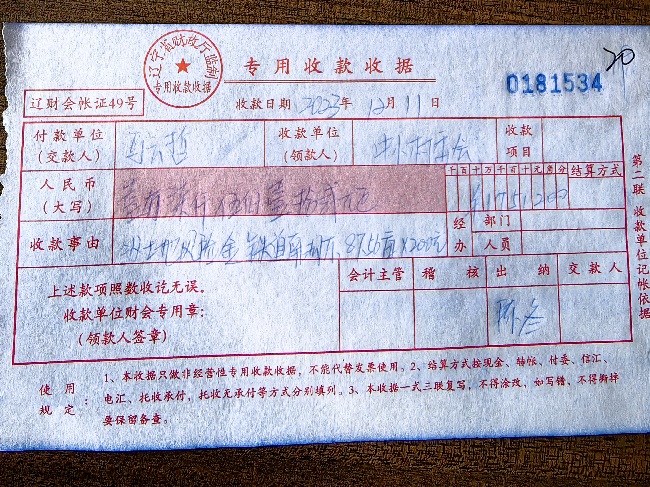 辽宁省财政厅监制
专用收款收据
专用收款收据
0181534
20
辽财会帐证49号
收款日期 2023年 12月 11日
付款单位
(交款人)
收款单位
(领款人)
收款
项目
人民币
(大写)
壹万柒仟伍佰壹拾贰元
千百十万千百十元角分
¥1751200
结算方式
收款事由
87.56亩×200元
经办
部门
人员
上述款项照数收讫无误。
收款单位财会专用章:
(领款人签章)
会计主管
稽核
出纳
交款人
陈彦
第二联 收款单位记帐依据
使用规定:
1、本收据只做非经营性专用收款收据,不能代替发票使用。2、结算方式按现金、转帐、付委、信汇、
电汇、托收承付,托收无承付等方式分别填列。3、本收据一式三联复写,不得涂改,如写错,不得撕掉
要保留备查。